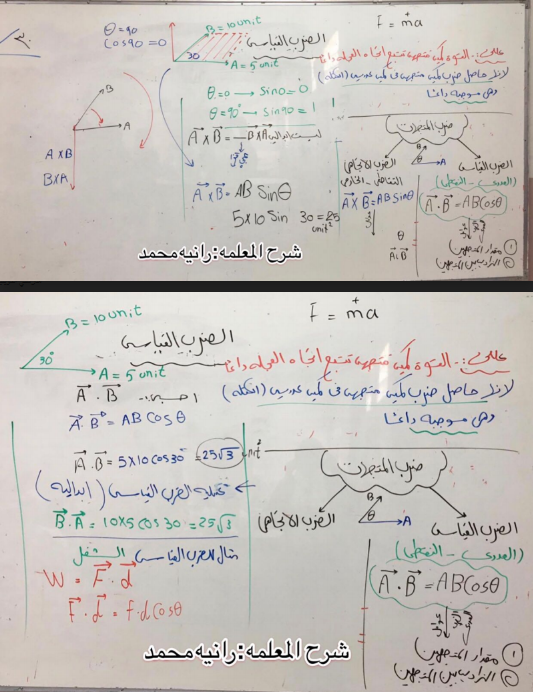 θ=90
cos90=0
B=10unit
30
A=5unit
الضرب القياسى
F = ma
+
علل: القوة كمية متجهة تتبع اتجاه العجلة دائما
لأنها حاصل ضرب كمية متجهة فى كمية عددية (الكتلة)
وهى موجبة دائما
θ=0 → sin0=0
θ=90° → sin90=1
A×B = -B×A ليست ابدالية
B
A
A×B
B×A
A×B = AB Sinθ
5×10 Sin 30=25
unit²
ضرب المتجهات
B
θ
A
الضرب الاتجاهى
A×B=AB Sinθ
الضرب القياسى
(العددى - النقطى)
A·B=ABCosθ
θ
A،B
① مقدار المتجهين
② الزاوية بين المتجهين
شرح المعلمه:رانيه محمد
B=10unit
30°
A=5unit
الضرب القياسى
F = ma
+
علل: القوة كمية متجهة تتبع اتجاه العجلة دائما
لأنها حاصل ضرب كمية متجهة فى كمية عددية (الكتلة)
وهى موجبة دائما
احسبى A·B
A·B = AB COSθ
A·B = 5×10 cos30° = 25√3 unit²
عملية الضرب القياسى (ابدالية)
B·A = 10×5 cos30 = 25√3
مثال الضرب القياسى الشغل
W = F·d
F·d = f·dCosθ
ضرب المتجهات
B
θ
A
الضرب الاتجاهى
الضرب القياسى
(العددى - النقطى)
A·B = ABCosθ
① مقدار المتجهين
② الزاوية بين المتجهين
شرح المعلمه:رانيه محمد